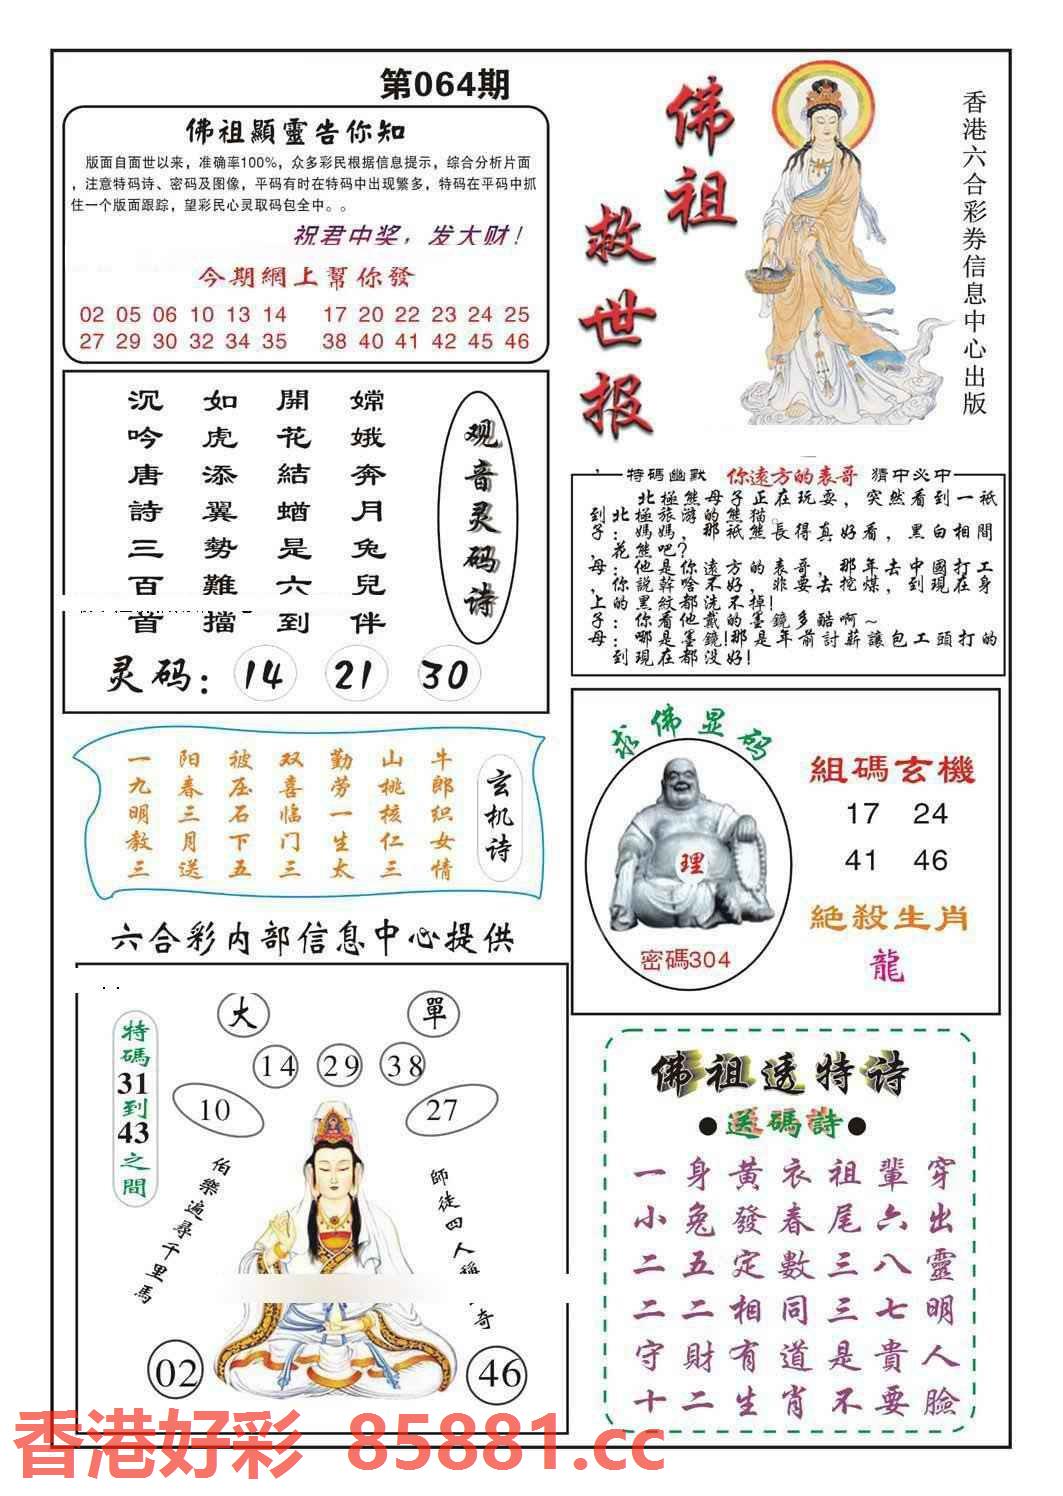 第064期
佛祖顯靈告你知
版面自面世以来，准确率100%，众多彩民根据信息提示，综合分析片面
，注意特码诗、密码及图像，平码有时在特码中出现繁多，特码在平码中抓
住一个版面跟踪，望彩民心灵取码包全中。。
祝君中奖，发大财！
今期網上幫你發
02 05 06 10 13 14 17 20 22 23 24 25
27 29 30 32 34 35 38 40 41 42 45 46
佛祖
救世报
香港六合彩券信息中心出版
观音灵码诗
嫦娥奔月兔兒伴
開花結蝤是六到
如虎添翼勢難擋
沉吟唐詩三百首
灵码：14 21 30
特碼幽默 你遠方的表哥 猜中必中
北極熊母子正在玩耍，突然看到一祇
到北極旅游的熊猫。
子：媽媽，那祇熊長得真好看，黑白相間
，花熊吧？
母：他是你遠方的表哥，那年去中國打工
，你說幹啥不好，非要去挖煤，到現在身
上的黑紋都洗不掉！
子：你看他戴的墨鏡多酷啊～
母：哪是墨鏡！那是年前討薪讓包工頭打的
到現在都没好！
玄机诗
牛郎织女情
山桃核仁三
勤劳一生太
双喜临门三
被压石下五
阳春三月送
一九明教三
求佛显码
理
密碼304
組碼玄機
17 24
41 46
絶殺生肖
龍
六合彩内部信息中心提供
大 單
14 29 38
10 27
特碼31到43之間
伯樂遍尋千里馬
師徒四人稱奇
02 46
佛祖透特诗
●送碼詩●
一身黃衣祖輩穿
小兔發春尾六出
二五定數三八靈
二二相同三七明
守財有道是貴人
十二生肖不要臉
香港好彩 85881.cc